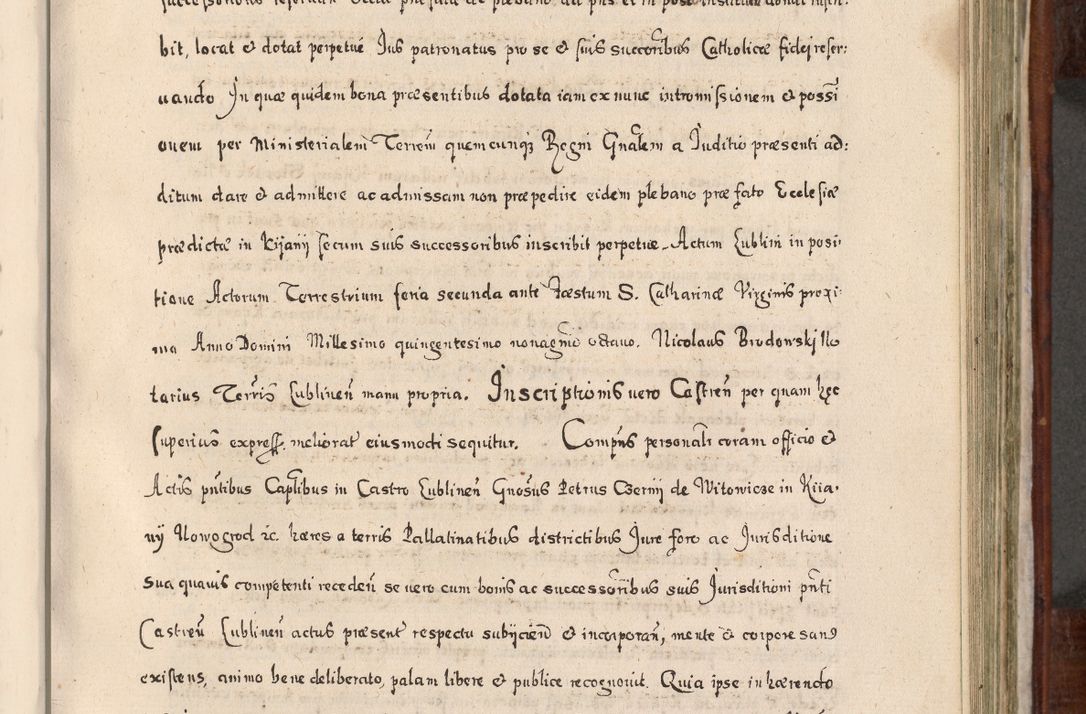 bit, locat & dotat perpetué Jus patronatus pro se & suis succoribus Catholicæ fidej reser:
uando In quæ quidem bona præsentibus dotata iam ex nunc intromissionem & possi
onem per Ministerialem Terrem quemcunq; Regni Gnalem a Juditio præsenti ad:
ditum dare & admittere ac admissam non præpedire eidem plebano præfato Ecclesiæ
prædictæ in Kijanij secum suis successoribus inscribit perpetue. Actum Lublini in posi
tione Actorum Terrestrium feria secunda ante Fæstum S. Catharinæ Virginis proxi:
ma Anno Domini Millesimo quingentesimo nonagmo octauo. Nicolaus Brodowskj No
tarius Terris Lublinen manu propria. Inscriptionis uero Castren per quam hęc
superius express. meliorat eiusmodi sequitur. Compns personalr coram officio &
Actis pntibus Captlibus in Castro Lublinen Gnosus Petrus Czernij de Witowicze in Kiia.
nij Nowogrod zc. hæres a terris Pallatinatibus districtibus Jure foro ac Jurisditione
sua quauis competenti receden se uero cum bonis ac successoribus suis Jurisditioni pnti
Castren Lublinen actus præsent respectu subijcien & incorporan, mente & corpore sang
existens, animo bene deliberato, palam libere & publice recognouit. Quia ipse inhærendo